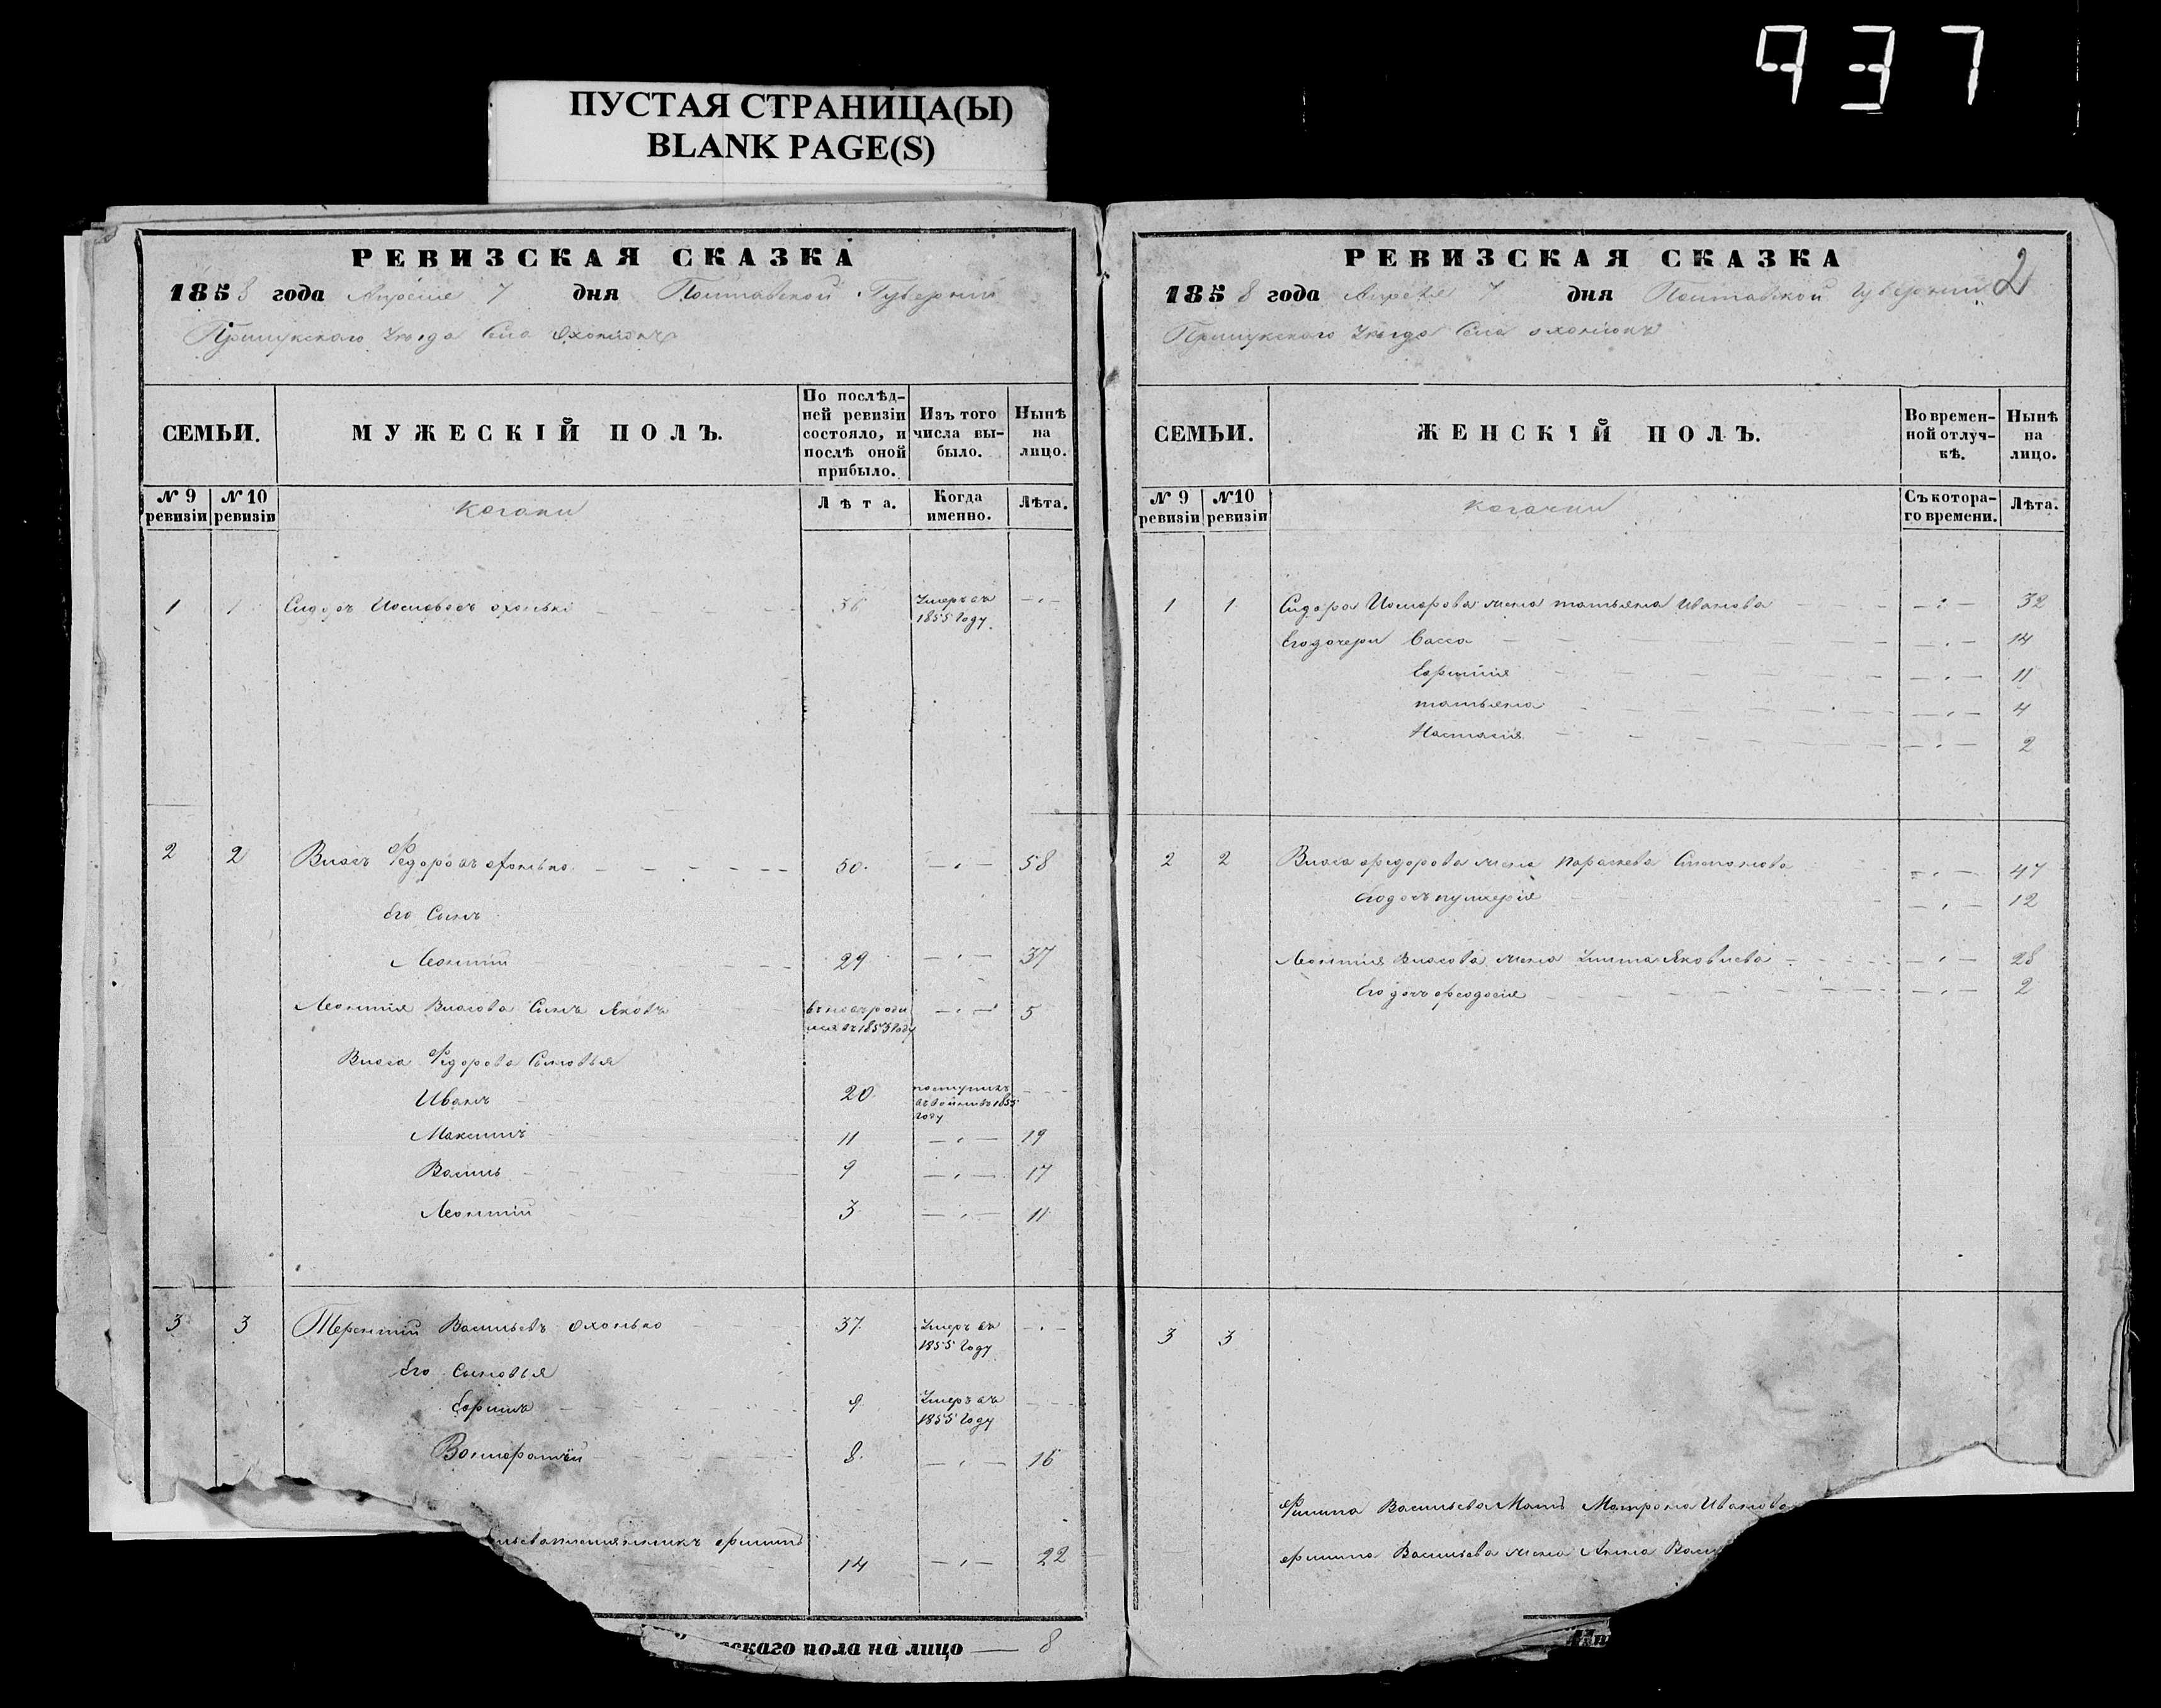 937
ПУСТАЯ СТРАНИЦА(Ы)
BLANK PAGE(S)
РЕВИЗСКАЯ СКАЗКА
1858 года Апреля 7 дня Полтавской Губернии
Прилукского уезда Села
СЕМЬИ.
МУЖЕСКІЙ ПОЛЪ.
По послѣд-
ней ревизіи
состояло, и
послѣ оной
прибыло.
Изъ того
числа вы-
было.
Нынѣ
на
лицо.
№ 9
ревизіи
№ 10
ревизіи
Козаки
Лѣта.
Когда
именно.
Лѣта.
1 1 Сидоръ 36 Умеръ въ
1855 Году
2 2 Власъ Федоровъ Охонько 50. 58
Его Сынъ
Леонтий 29 37
Леонтия Власова Сынъ Яковъ 5
1853 Году
Власа Федорова Сыновья
Иванъ 20 1855
Году
Максимъ 11 19
Василь 9 17
Леонтий 3 11
3 3 Терентий Васильевъ Охонько 37. Умеръ въ
1855 Году
Его Сыновья
Ефимъ 9 Умеръ въ
1855 Году
8. 16
племянникъ Филипъ
14 22
скаго пола на лицо — 8
РЕВИЗСКАЯ СКАЗКА 2
1858 года Апреля 7 дня Полтавской Губернии
Прилукского уезда Села
СЕМЬИ.
ЖЕНСКІЙ ПОЛЪ.
Во времен-
ной отлуч-
кѣ.
Нынѣ
на
лицо.
№ 9
ревизіи
№ 10
ревизіи
Козачки
Съ котора-
го времени.
Лѣта.
1 1 Сидора жена татьяна Иванова 32
Его дочери Васса 14
11
татьяна 4
Настасия 2
2 2 Власа федорова жена параскева Степанова 47
Его дочь пулхерия 12
Леонтия Власова жена Улита Яковлева 28
Его дочь феодосия 2
3 3
Филипа Васильева Мать Матрона Иванова
филипа Васильева жена Анна